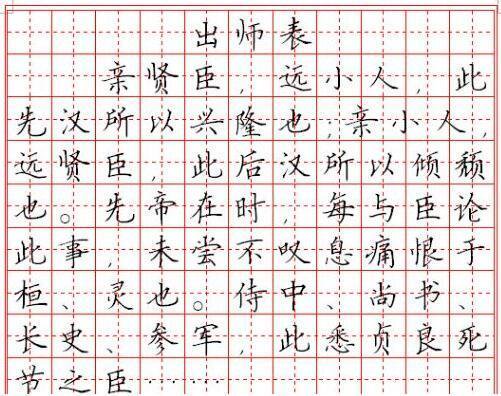 出师表
亲贤臣，远小人，此
先汉所以兴隆也；亲小人，
远贤臣，此后汉所以倾颓
也。先帝在时，每与臣论
此事，未尝不叹息痛恨于
桓、灵也。侍中、尚书、
长史、参军，此悉贞良死
节之臣……